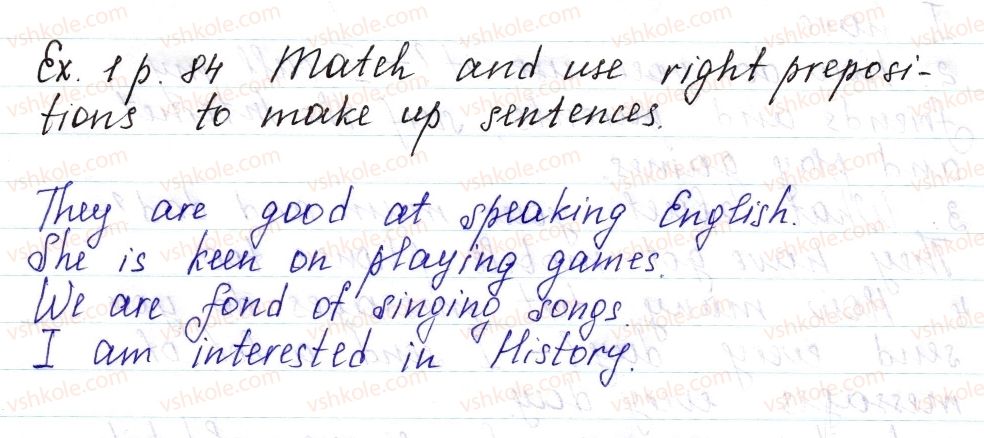 Ex. 1 p. 84 Match and use right preposi-
tions to make up sentences.
They are good at speaking English.
She is keen on playing games.
We are fond of singing songs.
I am interested in History.